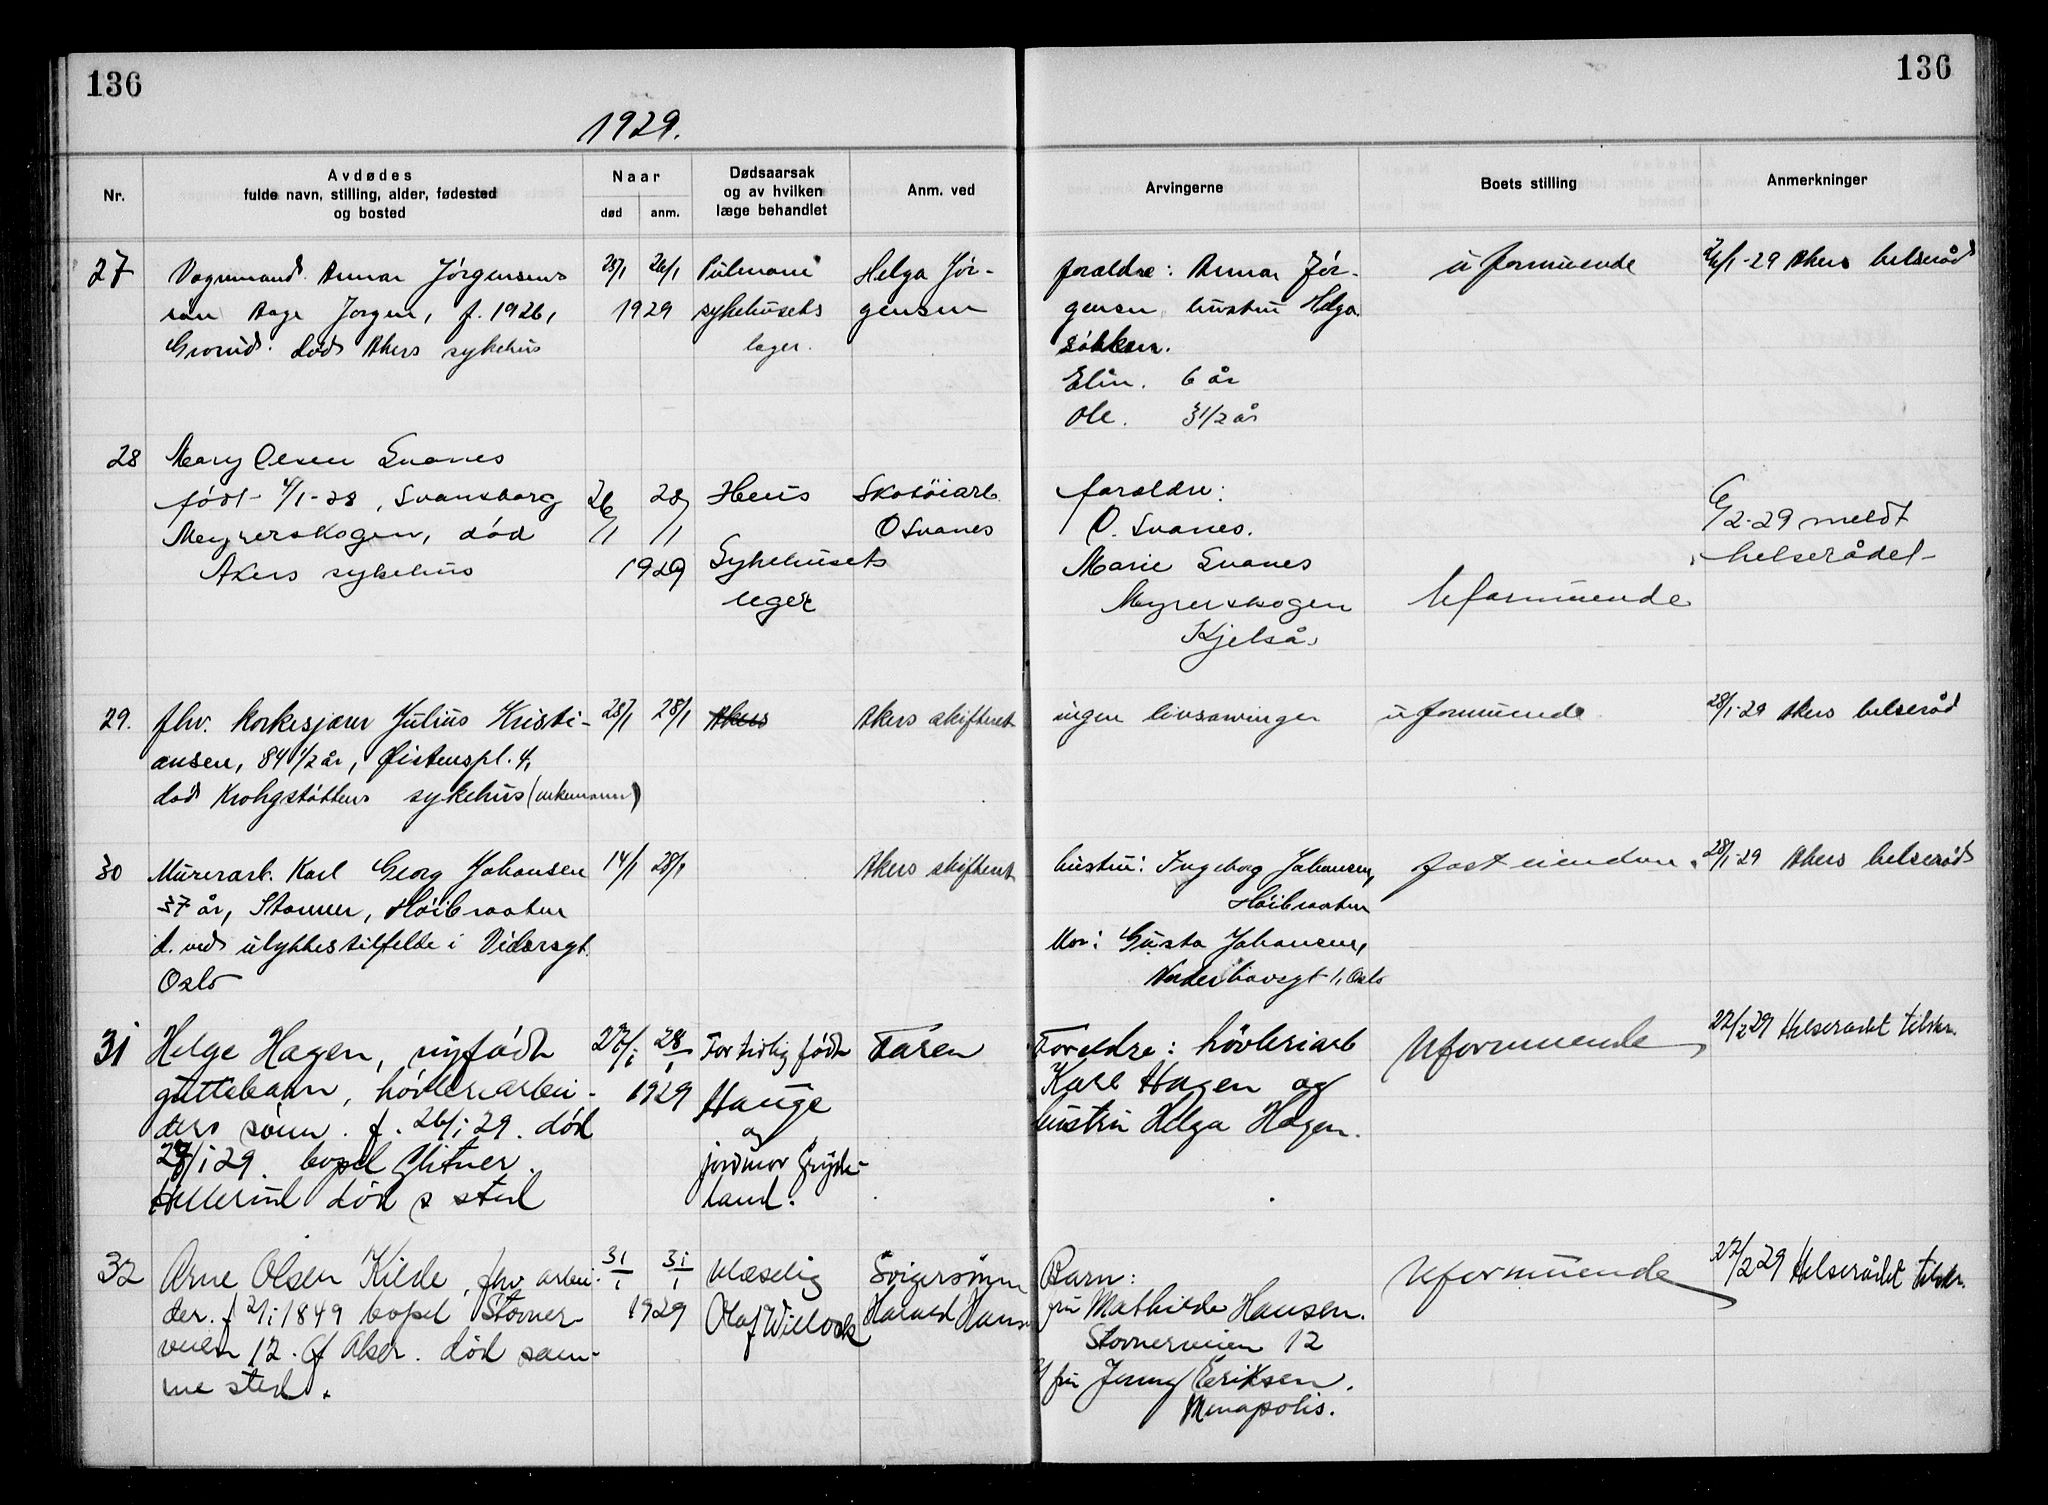 136
136
1929.
Nr.
Avdødes
fulde navn, stilling, alder, fødested
og bosted
Naar
død
anm.
Dødsaarsak
og av hvilken
læge behandlet
Anm. ved
Arvingerne
Boets stilling
Anmerkninger
27
Vognmand Annar Jörgensens
sön Aage Jörgen, f. 1926,
Grorud. död Akers sykehus
25/1 26/1
1929
sykehusets
læger.
Helga Jör-
gensen
foreldre: Annar Jör-
gensen, hustru Helga.
söskn.
Elin. 6 år
Ole. 3 1/2 år
uformuende
26/1-29 Akers helseråd
28
Mary Olsen Svanes
født 4/1-28, Svansborg
Meyrerskogen, død
Akers sykehus
26/1 28/1
1929
Sykehusets
leger
Skotöiarb.
O Svanes
foreldre:
O. Svanes.
Marie Svanes
Meyrerskogen
Kjelså.
Uformuende
6/2-29 meldt
helserådet
29.
fhv. korkeskjærer Julius Kristi-
ansen, 84 1/2 år, Østenspl. 4,
död Krohgstöttens sykehus (enkemann)
28/1 28/1
Akers
Akers skifteret
ingen livsarvinger
uformuende
28/1-29 Akers helseråd
30
Murerarb. Karl Georg Johansen
37 år, Stovner, Höibraaten
d. ved ulykkestilfelde i Vidarsgt.
Oslo
14/1 28/1
Akers skifteret
hustru: Ingeborg Johansen,
Höibraaten
Mor: Gusta Johansen,
Nordershovsgt 1, Oslo
fast eiendom
28/1-29 Akers helseråd
31
Helge Hagen, nyfödt
guttebarn, hövleriarbei-
ders sönn. f. 26/1 29. död
27/1 29. bopel Glitner.
Hellerud död s sted
27/1 28/1
1929
For tidlig födt
Hauge
og
jordmor Gryde-
land.
Faren
Foreldre: hövleriarb
Karl Hagen og
hustru Helga Hagen.
Uformuende
22/2 29 Helserådet tilskr.
32
Arne Olsen Kilde, fhv arbei-
der. f 2/1 1849 bopel Stovner-
veien 12. død sam-
me sted.
31/1 31/1
1929
Olaf Willock
Svigersönn
Harald Hans.
Barn:
fru Mathilde Hansen.
Stovnerveien 12
fru Jenny Eriksen.
Minapolis.
Uformuende
22/2 29 Helserådet tilskr.